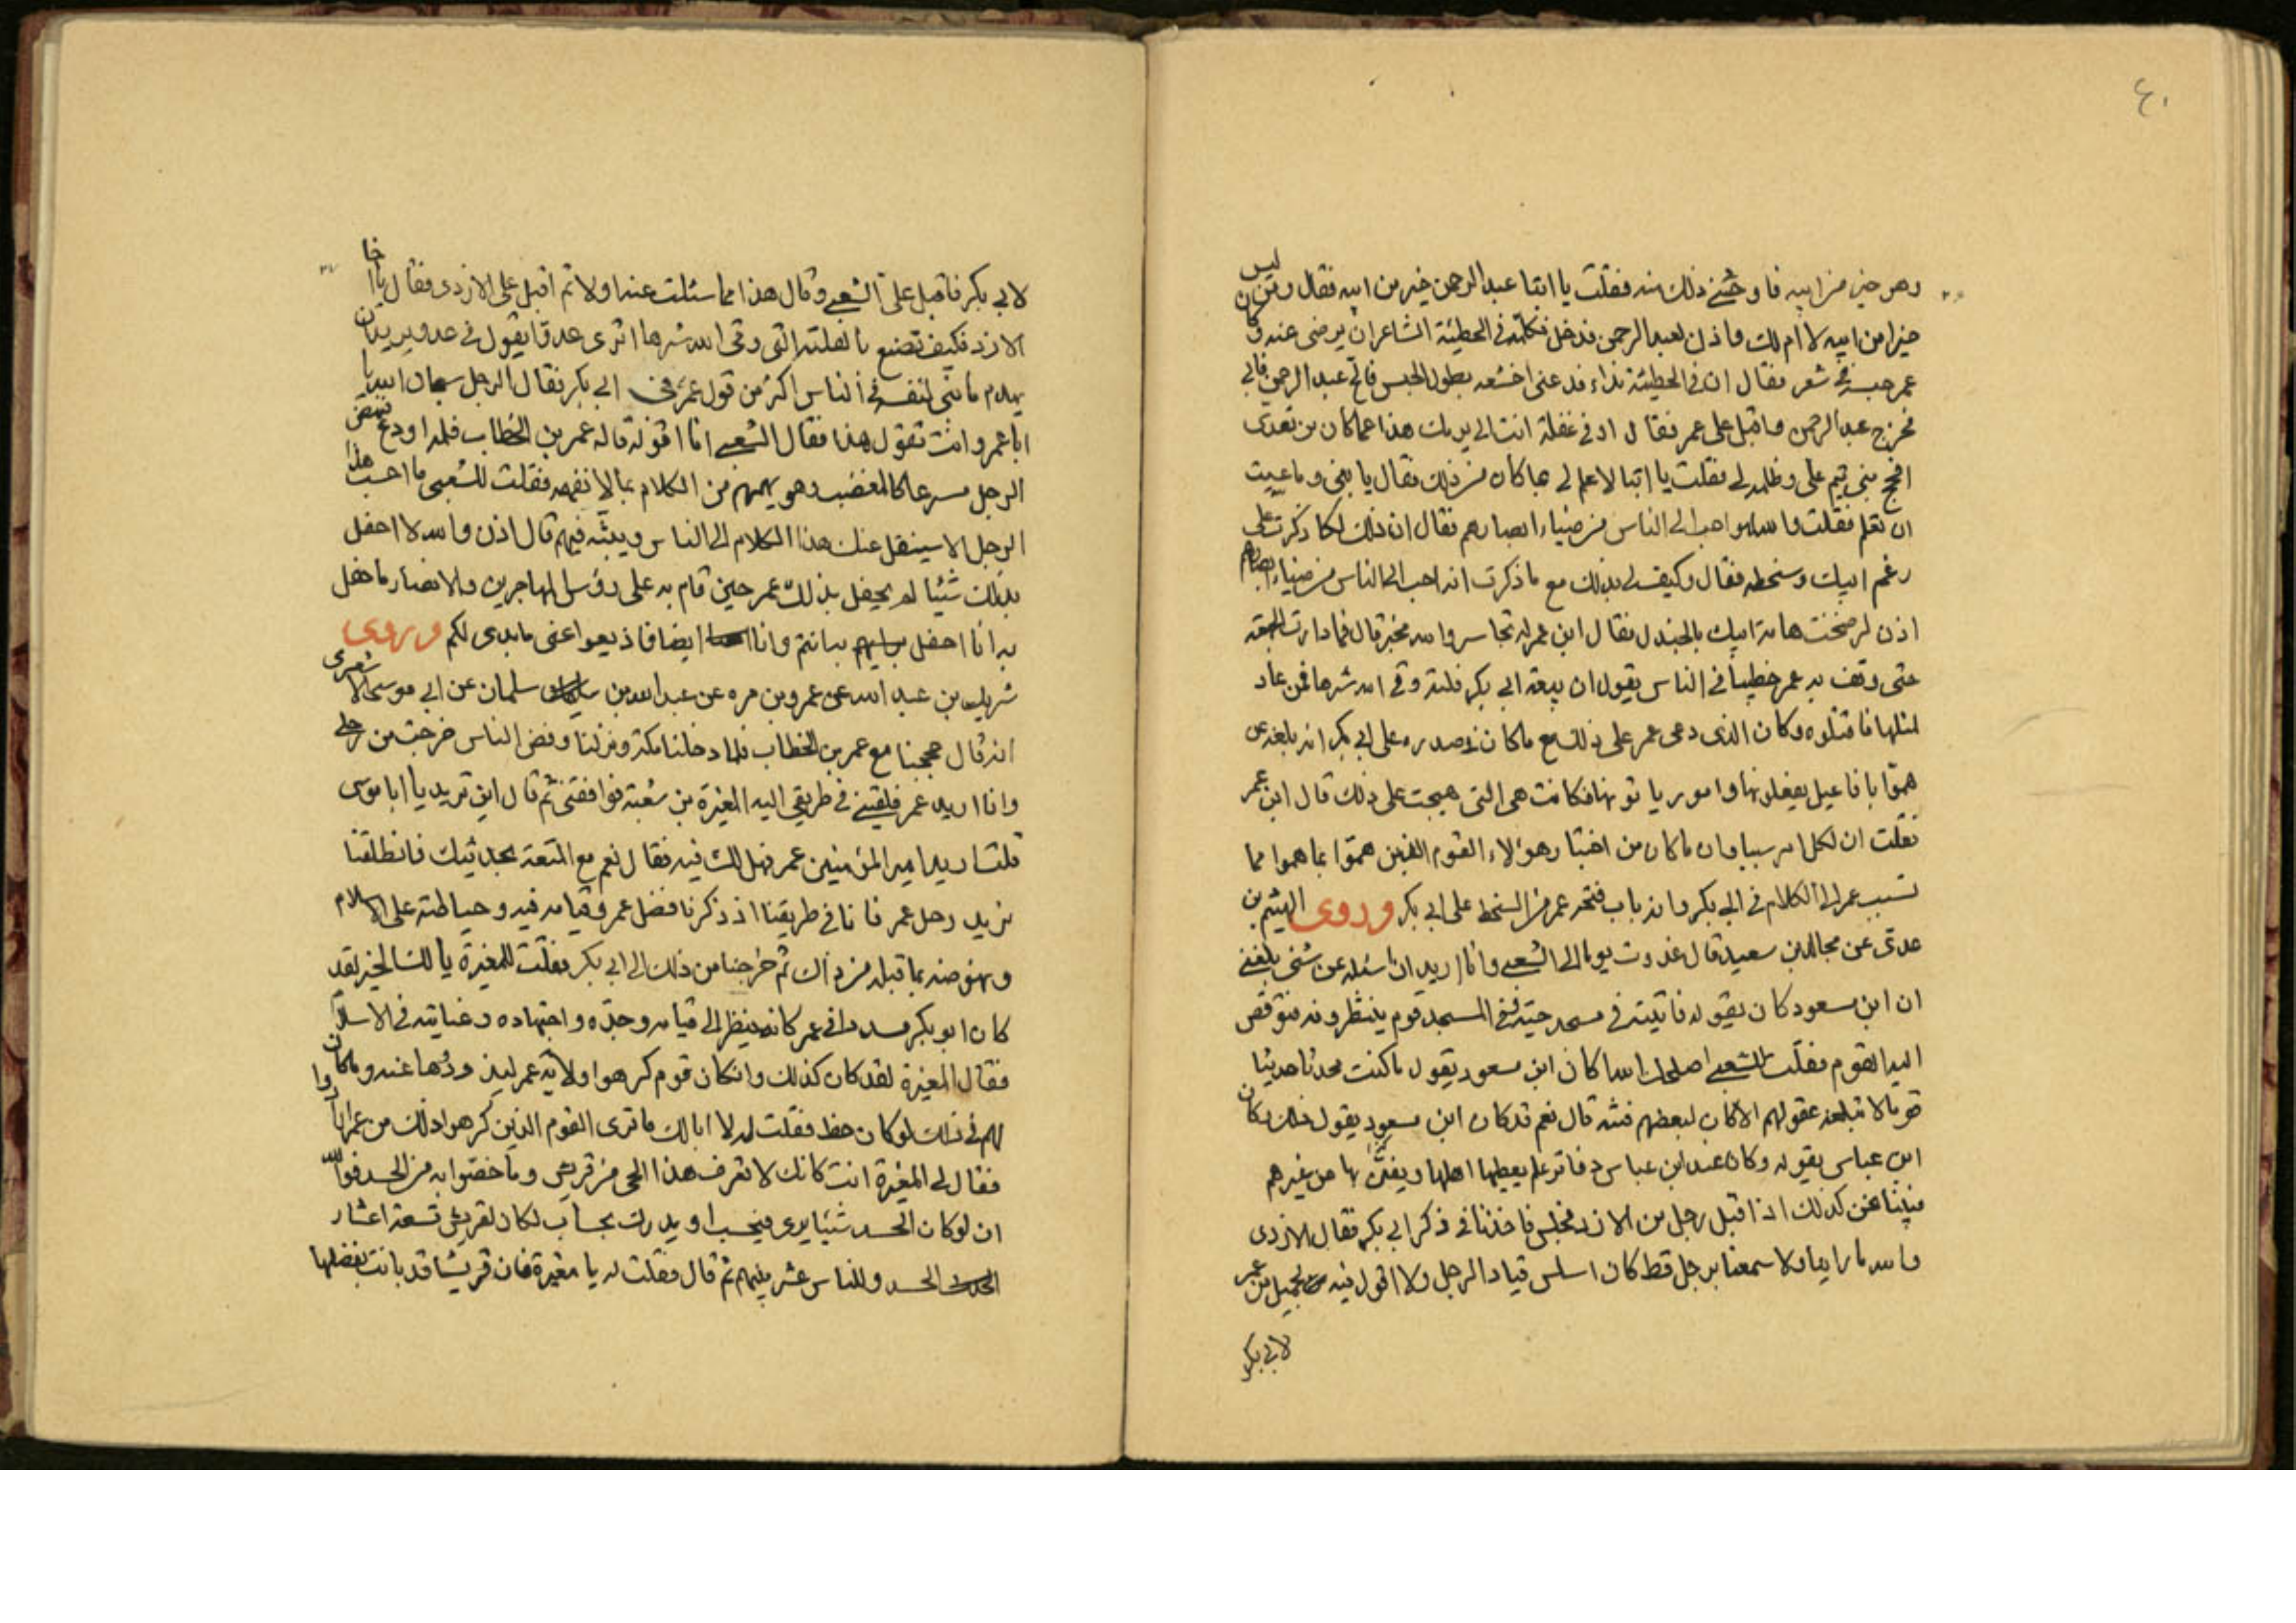 ٤٠
وهو خير من ابيه فاوحشني ذلك منه فقلت يا ابتا عبد الرحمن خير من ابيه فقال ومن ليس
خيرا من ابيه لا ام لك واذن لعبد الرحمن فدخل فكلمه في الحطيئة الشاعر ان يرضى عنه وكان
عمر حبسه في شعر فقال ان في الحطيئة بذاء فدعني اخشعه بطول الحبس فالح عبد الرحمن فابى
فخرج عبد الرحمن واقبل على عمر فقال او في غفلة انت الى يومك هذا عما كان من تعدى
افحج بني تيم على وظلمه لي فقلت يا ابتا لا علم لي بما كان من ذلك فقال يا بني وما عييت
ان تعلم فقلت والله لهو احب الى الناس من ضياء ابصارهم فقال ان ذلك لكما ذكرت على
رغم ابيك وسخطه فقال وكيف لي بذلك مع ما ذكرت انه احب الى الناس من ضياء ابصارهم
اذن لرضخت هامة ابيك بالجندل فقال ابن عمر ثم تجاسر والله فجسر قال فما دارت الجمعة
حتى وقف به عمر خطيبا في الناس يقول ان بيعة ابي بكر فلتة وقى الله شرها فمن عاد
لمثلها فاقتلوه وكان الذى دعى عمر على ذلك مع ما كان في صدره على ابي بكر انه بلغه عن
همّوا بافاعيل يفعلونها وامور ياتونها فكانت هي التي هيجت على ذلك قال ابن عمر
فقلت ان لكل امر سببا وان ما كان من اخبار هؤلاء القوم الذين همّوا بما هموا مما
تسبب عمر الى الكلام في ابي بكر وانه باب فتحه عمر من السخط على ابي بكر وروى الهيثم بن
عدى عن مجالد بن سعيد قال غدوت يوما الى الشعبي وانا اريد ان اسئله عن شئ بلغني
ان ابن مسعود كان يقوله فاتيته في مسجد حيّه وفي المسجد قوم ينتظرونه فتوقص
اليه القوم فقلت للشعبي اصلحك الله كان ابن مسعود يقول ما كنت محدثا حديثا
قوما لا تبلغه عقولهم الا كان لبعضهم فتنه قال نعم قد كان ابن مسعود يقول ذلك وكان
ابن عباس يقوله وكان عند ابن عباس دفاتر علم يعطيها اهلها ويضنّ بها من غيرهم
فبينا نحن كذلك اذا قبل رجل من الازد فجلس فاخذنا في ذكر ابي بكر فقال الازدى
والله ما راينا ولا سمعنا برجل قط كان اسلس قيادا لرجل ولا اقول فيه بالجميل من عمر
لابي بكر
لابي بكر فاقبل على الشعبي وقال هذا مما سئلت عنه اولا ثم اقبل على الازدى فقال يا اخا
الازد فكيف تصنع بالفلتة التي وقى الله شرها اترى عدوّا يقول في عدو يريد ان
يهدم ما بنى لنفسه في الناس اكثر من قول عمر في ابي بكر فقال الرجل سبحان الله يا
ابا عمرو انت تقول هذا فقال الشعبي انا اقوله قاله عمر بن الخطاب فلمه او دع فنهض
الرجل مسرعا كالمغضب وهو يهمهم من الكلام بما لا نفهمه فقلت للشعبي ما احسب هذا
الرجل الا سينقل عنك هذا الكلام الى الناس ويبثه فيهم قال اذن والله لا احفل
بذلك شيئا لم يحفل بذلك عمر حين قام به على رؤس المهاجرين والانصار ما حفل
به انا احفل به انتم وانا ايضا فاذيعوا عني ما بدى لكم وروى
شريك بن عبد الله عن عمرو بن مره عن عبد الله بن سلمان عن ابي موسى الاشعرى
انه قال حججنا مع عمر بن الخطاب فلما دخلنا مكة ونزلنا ومضى الناس خرجت من رحلي
وانا اريد عمر فلقيني في طريقي اليه المغيرة بن شعبة فرافقني ثم قال اين تريد يا ابا موسى
قلت اريد امير المؤمنين عمر فهل لك فيه فقال نعم مع المتعة بحديثك فانطلقنا
نريد رحل عمر فانا في طريقنا اذ ذكرنا فضل عمر وقيامه فيه وحياطته على الاسلام
ونهوضه بما قبله من ذلك ثم خرجنا من ذلك الى ابي بكر فقلت للمغيرة يا لك الخير لقد
كان ابو بكر مسددا في عمر كانه ينظر الى قيامه وجدّه واجتهاده وغنايته في الاسلام
فقال المغيرة لقد كان كذلك وان كان قوم كرهوا ولاية عمر ليزووها عنه وما كان
لهم في ذلك لو كان حظ فقلت له لا ابا لك ما ترى القوم الذين كرهوا ذلك من عمر ابا
فقال لي المغيرة انت كانك لا تعرف هذا الحي من قريش وما خصّوا به من الحسد فوالله
ان لو كان الحسد شيئا يرى فيحسب او يدرك بحساب لكان لقريش تسعة اعشار
الحسد وللناس عشر بينهم ثم قال فقلت له يا مغيرة فان قريشا قد بانت بفضلها